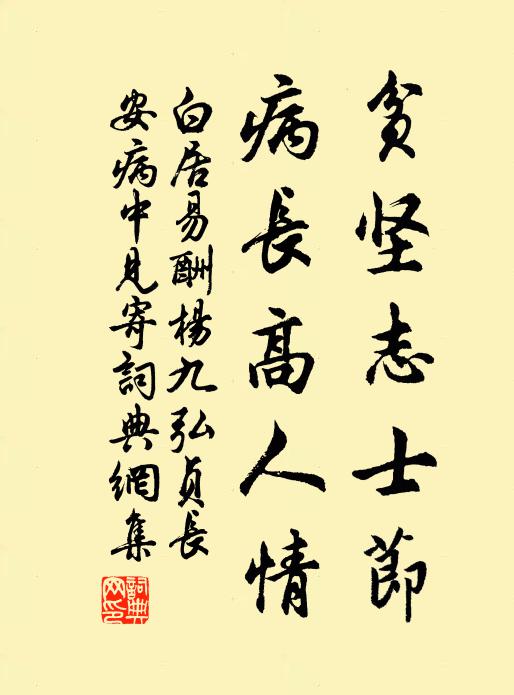 贫坚志士節
病長高人情
白居易酬楊九弘貞長
安病中見寄詞典網集
詞典
网印